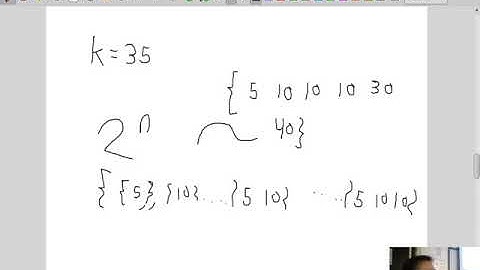 k = 35
{ 5 10 10 10 30
2^n 40}
{ {5}, {10} ..... {5 10} ..... {5 10 10}